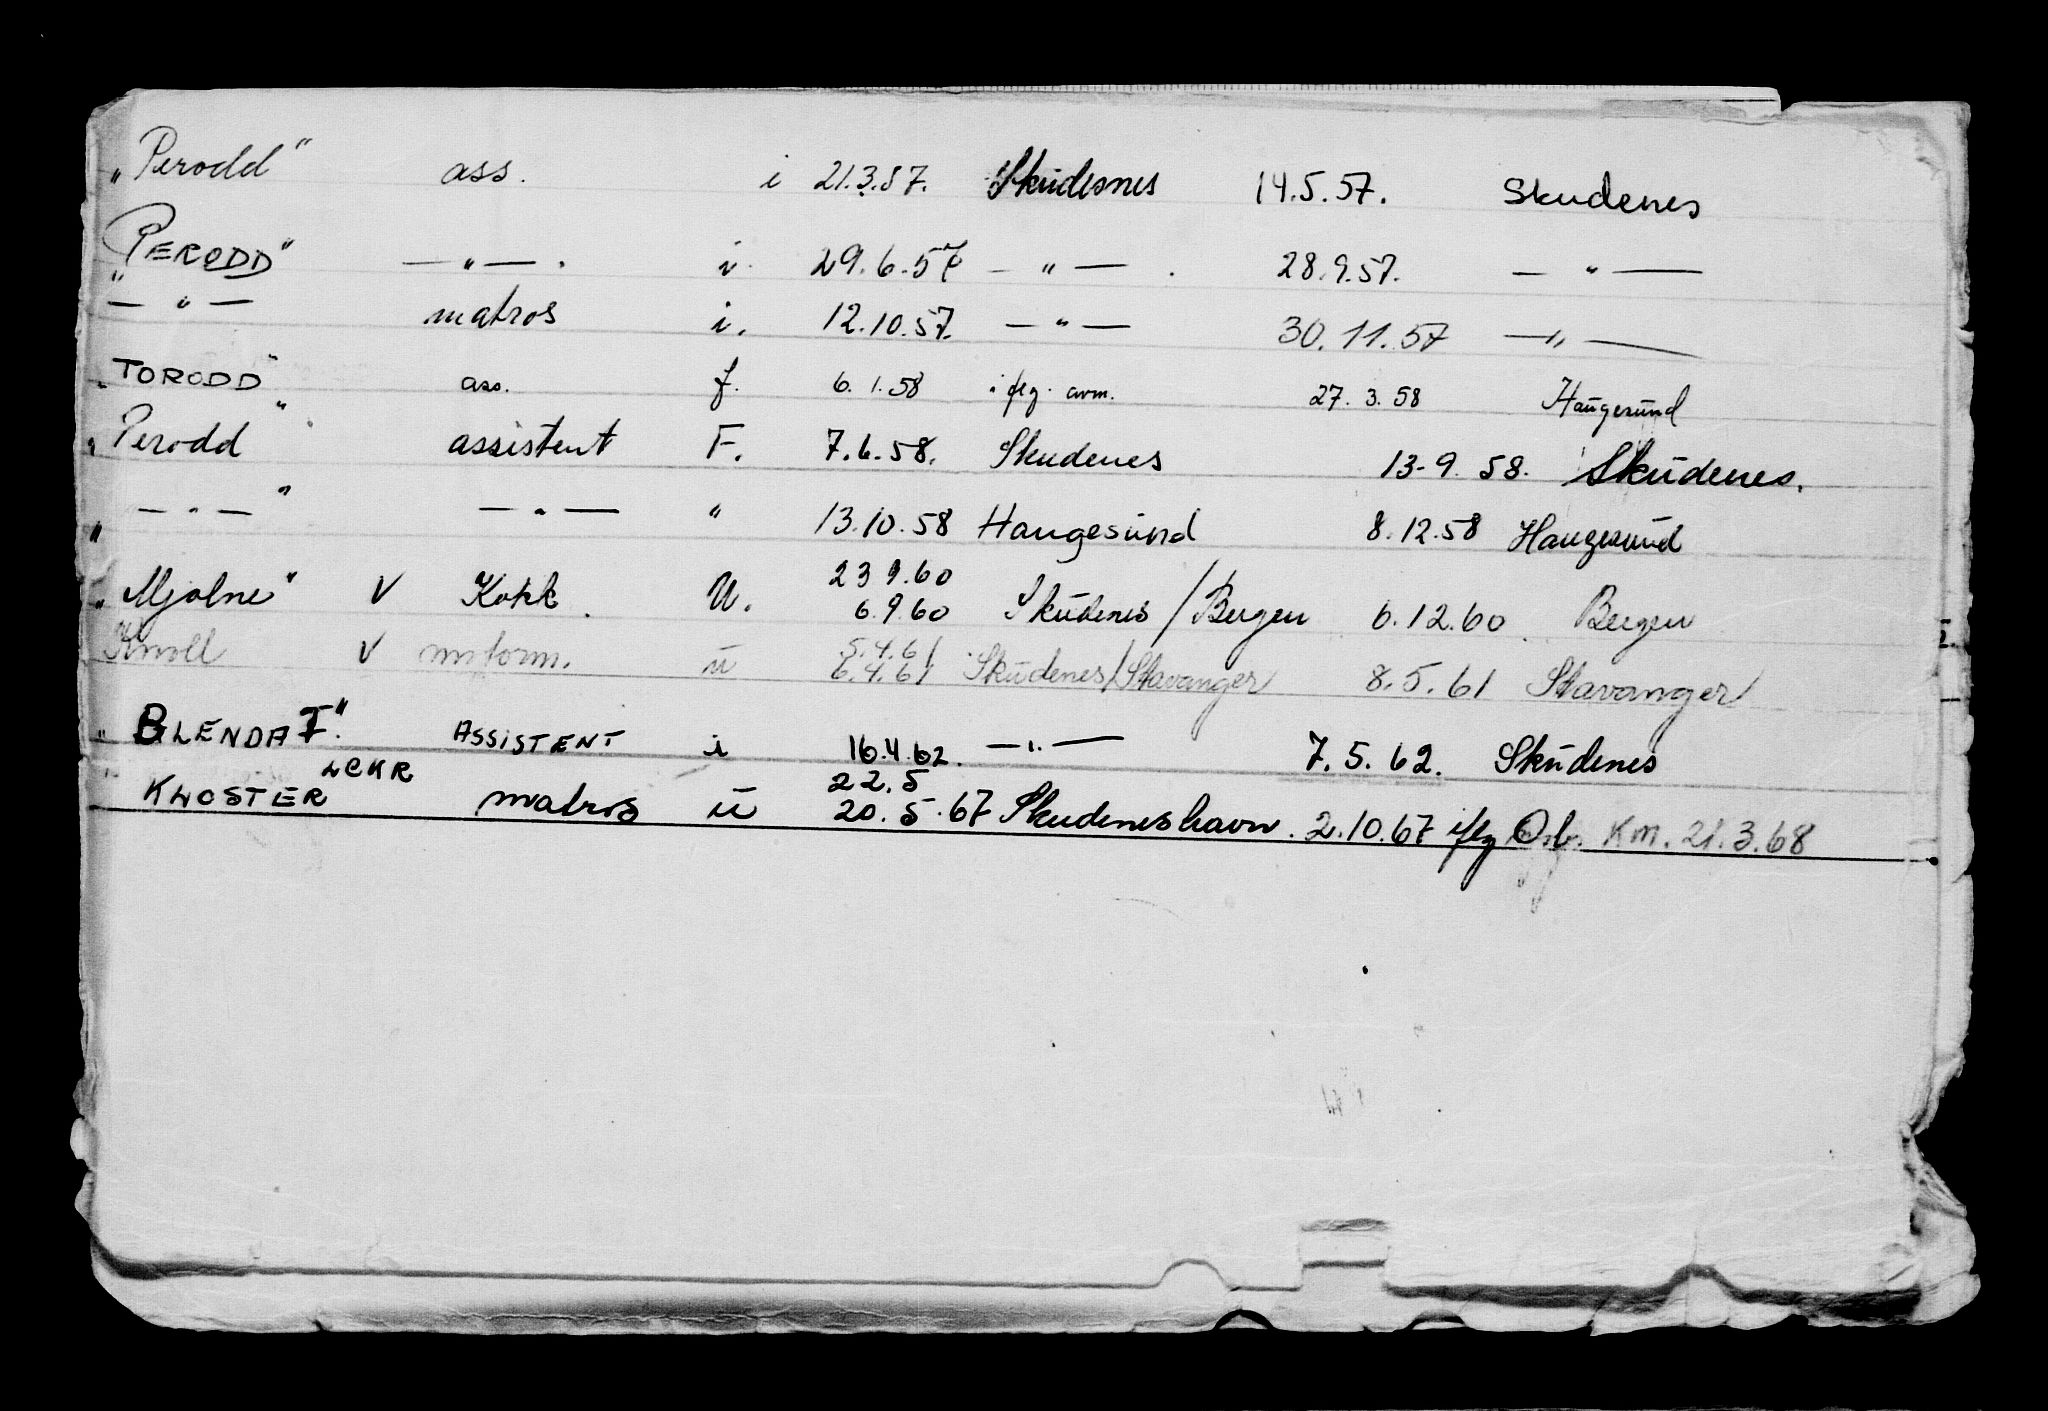 „Perodd" ass. i 21.3.57. Skudesnes 14.5.57. Skudenes
„PERODD" — „ — . i. 29.6.57 — „ — . 28.9.57. — „ —
— „ — matros i. 12.10.57. — „ — 30.11.57 — „ —
„TORODD" ass. f. 6.1.58 i flg. avm. 27.3.58 Haugesund
„Perodd" assistent F. 7.6.58. Skudenes 13-9.58. Skudenes.
„ — „ — " — „ — „ 13.10.58 Haugesund 8.12.58 Haugesund
23 9.60
„Mjølne" V Kokk. U. 6.9.60 Skudenes/Bergen 6.12.60 Bergen
5.4.61
Knoll V m. u 6.4.61 Skudenes/Stavanger 8.5.61 Stavanger
„BLENDA I." ASSISTENT i 16.4.62. — „ — 7.5.62. Skudenes
LCKR 22.5
KLOSTER matros u 20.5.67 Skudeneshavn. 2.10.67 iflg Km. 21.3.68